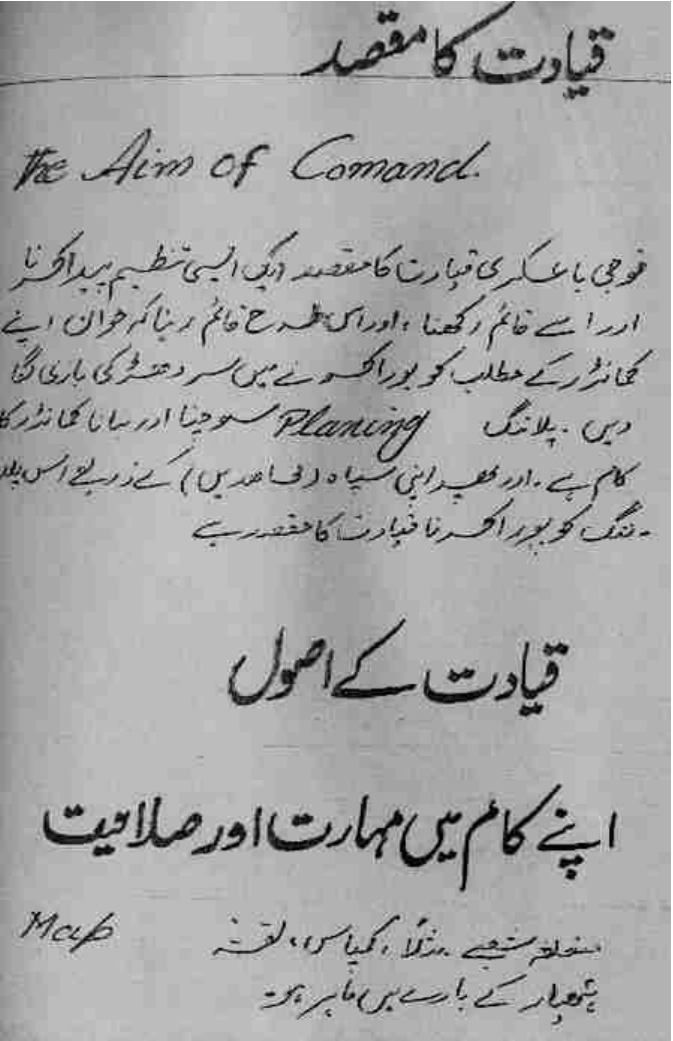 قیادت کا مقصد
The Aim of Comand.
فوجی یا عسکری قیادت کا مقصد ایک ایسی تنظیم پیدا کرنا
اور اسے قائم رکھنا ، اور اس طرح قائم رہنا کہ جوان اپنے
کمانڈر کے مطلب کو پورا کرنے میں سر دھڑ کی بازی لگا
دیں ۔ پلاننگ Planing سوچنا اور بنانا کمانڈر کا
کام ہے ۔ اور پھر اپنی سپاہ (مجاہدین) کے ذریعے اس پلا
ننگ کو پورا کرنا قیادت کا مقصد ہے
قیادت کے اصول
اپنے کام میں مہارت اور صلاحیت
متعلقہ شعبے مثلاً ، کمپاس ، نقشہ Map
ہتھیار کے بارے میں ماہر ہو